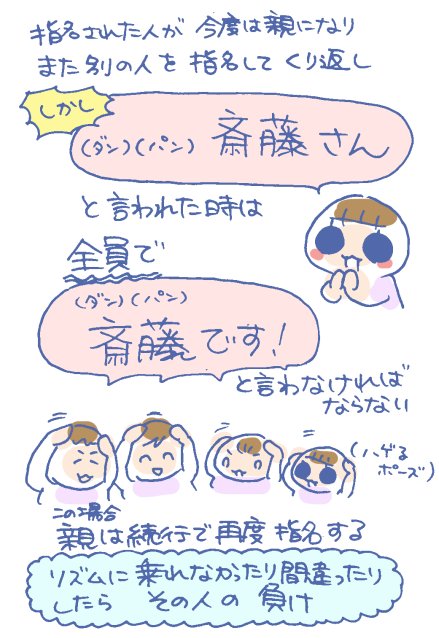 指名された人が 今度は親になり
また別の人を 指名して くり返し
しかし
(ダン)(パン) 斎藤さん
と言われた時は
全員で
(ダン)(パン)
斎藤です!
と言わなければ
ならない
(ハゲる
ポーズ)
この場合
親は続行で再度指名する
リズムに 乗れなかったり間違ったり
したら その人の 負け